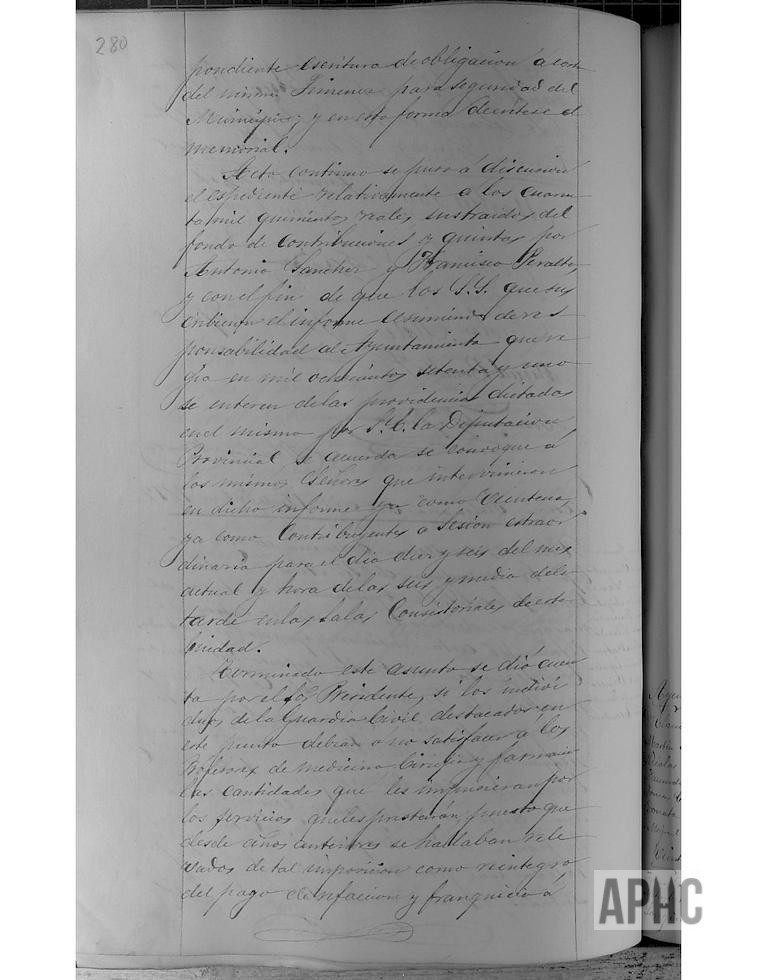 280
pondiente escritura de obligacion á costa
del mismo Jimenez para seguridad del
Municipio, y en esta forma decretese el
memorial.
Acto continuo se puso á discusion
el espediente relativamente a los cuaren
ta mil quinientos reales sustraidos del
fondo de Contribuciones y quintas por
Antonio Sanchez y Francisco Peralta,
y con el fin de que los S.S. que sus
cribieron el informe asumiendo de res
ponsabilidad al Ayuntamiento que re
gia en mil ochocientos setenta y uno
se enteren de las providencias dictadas
en el mismo por S.E. la Diputacion
Provincial, se acuerda se convoque á
los mismos Señores que intervinieron
en dicho informe ya como Veintena,
ya como Contribuyentes a Sesion estraor
dinaria para el dia diez y seis del mes
actual y hora de las seis y media de la
tarde en las Salas Consistoriales de esta
Ciudad.
Terminado este asunto se dió cuen
ta por el Sor Presidente, si los indivi
duos de la Guardia Civil destacados en
este punto debian o no satisfacer a los
Profesores de medicina Cirugia y farmacia
las cantidades que les impusieran por
los servicios que les prestarán, puesto que
desde años anteriores se hallaban rele
vados de tal imposicion como reintegro
del pago de refaccion y franquicia á
APHC